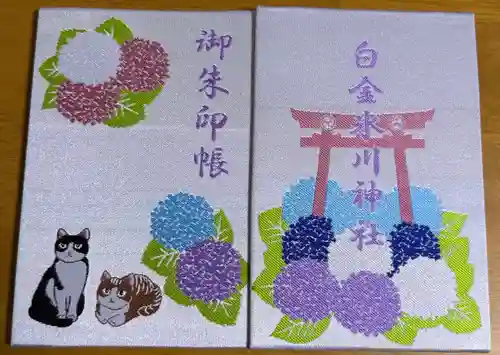 御朱印帳
白金氷川神社